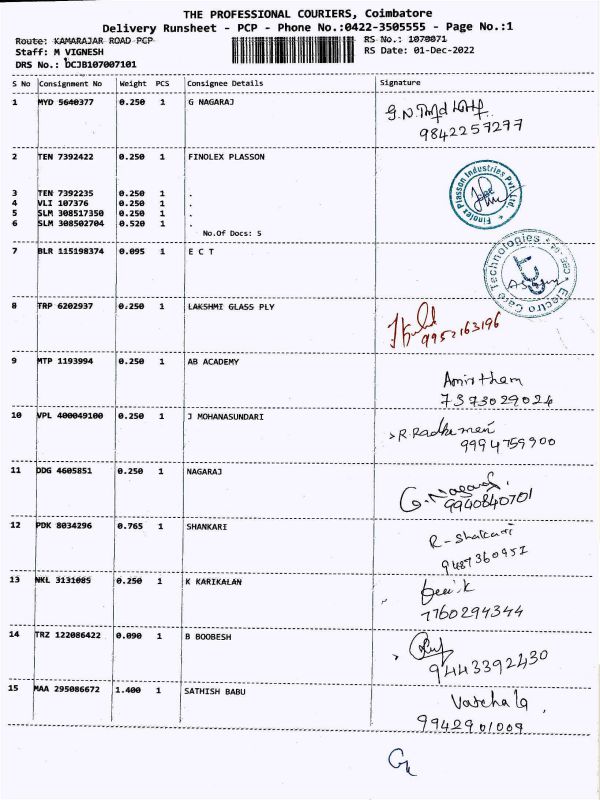 THE PROFESSIONAL COURIERS, Coimbatore
Delivery Runsheet - PCP - Phone No.:0422-3505555 - Page No.:1
Route: KAMARAJAR ROAD PCP
RS No.: 1070071
Staff: M VIGNESH
RS Date: 01-Dec-2022
DRS No.: DCJB107007101
S No Consignment No Weight PCS Consignee Details Signature
1 MYD 5640377 0.250 1 G NAGARAJ
9842257277
2 TEN 7392422 0.250 1 FINOLEX PLASSON
Finolex Plasson Industries Pvt. Ltd.
3 TEN 7392235 0.250 1 .
4 VLI 107376 0.250 1 .
5 SLM 308517350 0.250 1 .
6 SLM 308502704 0.520 1 .
No.Of Docs: 5
7 BLR 115198374 0.095 1 E C T
Electro Care Technologies
8 TRP 6202937 0.250 1 LAKSHMI GLASS PLY
9952163196
9 MTP 1193994 0.250 1 AB ACADEMY
Amirtham
7373029024
10 VPL 400049100 0.250 1 J MOHANASUNDARI
9994759900
11 DDG 4605851 0.250 1 NAGARAJ
G. Nagaraj
9940840701
12 PDK 8034296 0.765 1 SHANKARI
9487360951
13 NKL 3131085 0.250 1 K KARIKALAN
7760294344
14 TRZ 122086422 0.090 1 B BOOBESH
9443392430
15 MAA 295086672 1.400 1 SATHISH BABU
Vatchala
9942901009